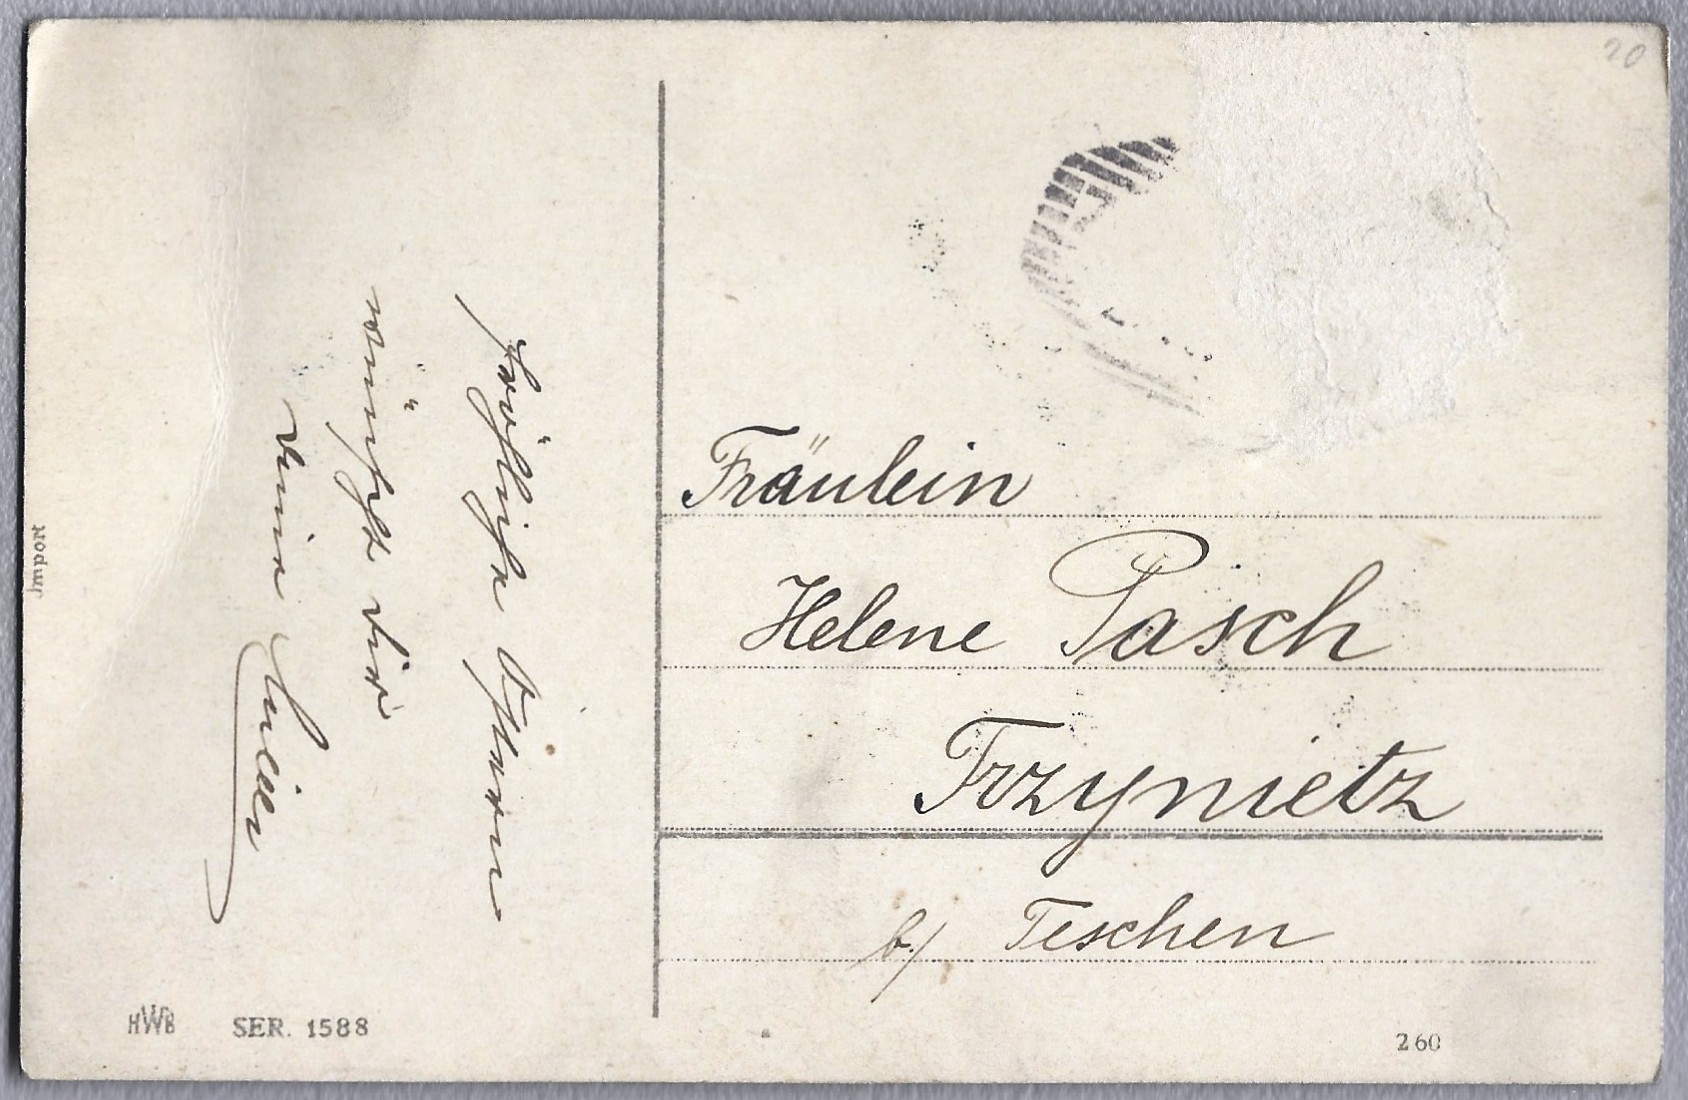 fröhliche Ostern
wünscht Dir
Deine
Fräulein
Helene Pasch
Trzynietz
b/ Teschen
Import
HWB SER. 1588
260
20